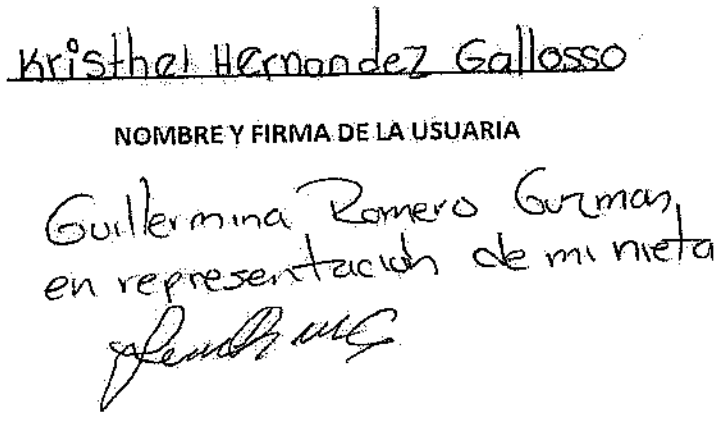 Kristhel Hernandez Gallosso
NOMBRE Y FIRMA DE LA USUARIA
Guillermina Romero Guzman,
en representación de mi nieta